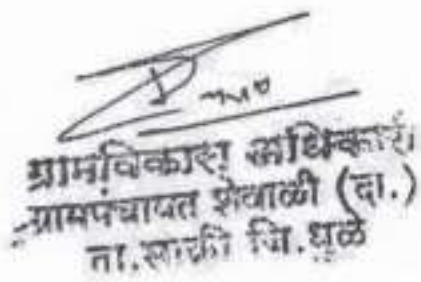 ग्रामविकास अधिकारी
ग्रामपंचायत शेवाळी (दा.)
ता.साक्री जि.धुळे